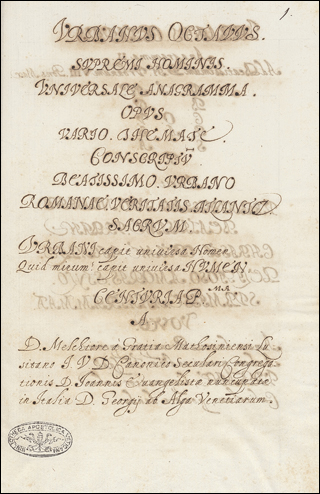 1.
VRBANVS OCTAVVS.
SVPREMI HOMINIS.
VNIVERSALE ANAGRAMMA.
OPVS
VARIO THEMATE
CONSCRIPTV
BEATISSIMO VRBANO
ROMANAE VERITATIS ATLANTI
SACRVM
VRBANI capit universa Nomen
Quid mirum? capit universa NVMEN
CENTVRIA P.MA
A
D. Melchiore a Gratia Lu
sitano I V D Canonico Seculari Congrega
tionis D. Ioannis Evangelistæ nuncupatæ
in Italia D. Georgij ab Alga Venetiarum.